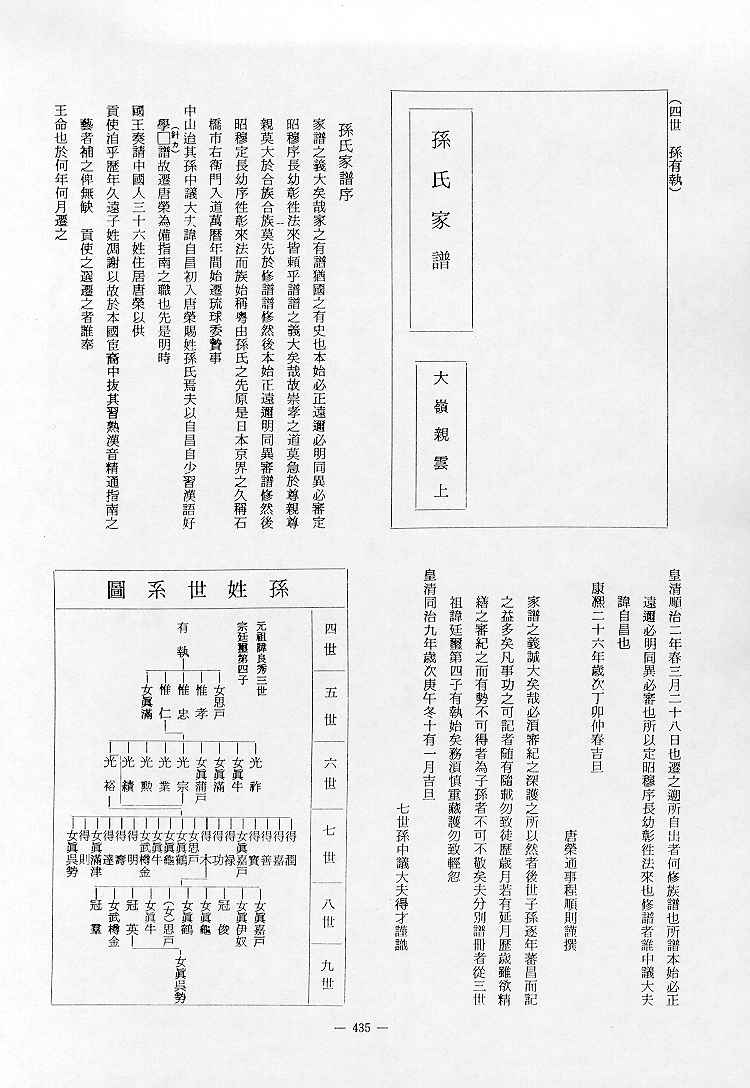 (四世　孫有執)
孫氏家譜
大嶺親雲上
孫氏家譜序
家譜之義大矣哉家之有譜猶國之有史也本始必正遠邇必明同異必審定
昭穆序長幼彰徃法來皆頼乎譜譜之義大矣哉故崇孝之道莫急於尊親尊
親莫大於合族合族莫先於修譜譜修然後本始正遠邇明同異審譜修然後
昭穆定長幼序徃彰來法而族始稱粤由孫氏之先原是日本京界之久稱石
橋市右衛門入道萬曆年間始遷琉球委贄事
中山迨其孫中議大夫諱自昌初入唐榮賜姓孫氏焉夫以自昌自少習漢語好
學□(針カ)譜故遷唐榮為備指南之職也先是明時
國王奏請中國人三十六姓住居唐榮以供
貢使洎乎歷年久遠子姓凋謝以故於本國宦裔中抜其習熟漢音精通指南之
藝者補之俾無缺　貢使之選遷之者誰奉
王命也於何年何月遷之
皇清順治二年春三月二十八日也遷之遡所自出者何修族譜也所譜本始必正
遠邇必明同異必審也所以定昭穆序長幼彰徃法來也修譜者誰中議大夫
諱自昌也
康熙二十六年歲次丁卯仲春吉旦
唐榮通事程順則謹撰
家譜之義誠大矣哉必湏審紀之深護之所以然者後世子孫逐年蕃昌而記
之益多矣凡事功之可記者随有隨載勿致徒歴歳月若有延月歴歳雖欲精
繕之審紀之而有勢不可得者為子孫者不可不敬矣夫分別譜冊者從三世
祖諱廷璽第四子有執始矣務湏慎重藏護勿致輕忽
皇清同治九年歳次庚午冬十有一月吉旦
七世孫中議大夫得才謹識
孫姓世系圖
四世
五世
六世
七世
八世
九世
元祖諱良秀三世
宗廷璽第四子
有執
女思戸
惟孝
惟忠
惟仁
女眞滿
光祚
女眞牛
女眞滿
女眞蒲戸
光宗
光業
光勲
光績
光裕
得潤
得嘉
得善
得寳
女眞嘉戸
得禄
得功
得木
女思戸
女眞鶴
女眞龜
女眞牛
女武樽金
得明
得壽
得達
女眞滿津
得則
女眞呉勢
女眞嘉戸
女眞伊奴
冠俊
女眞龜
女眞鶴
(女)思戸
女眞牛
冠英
女武樽金
冠羣
女眞呉勢
— 435 —